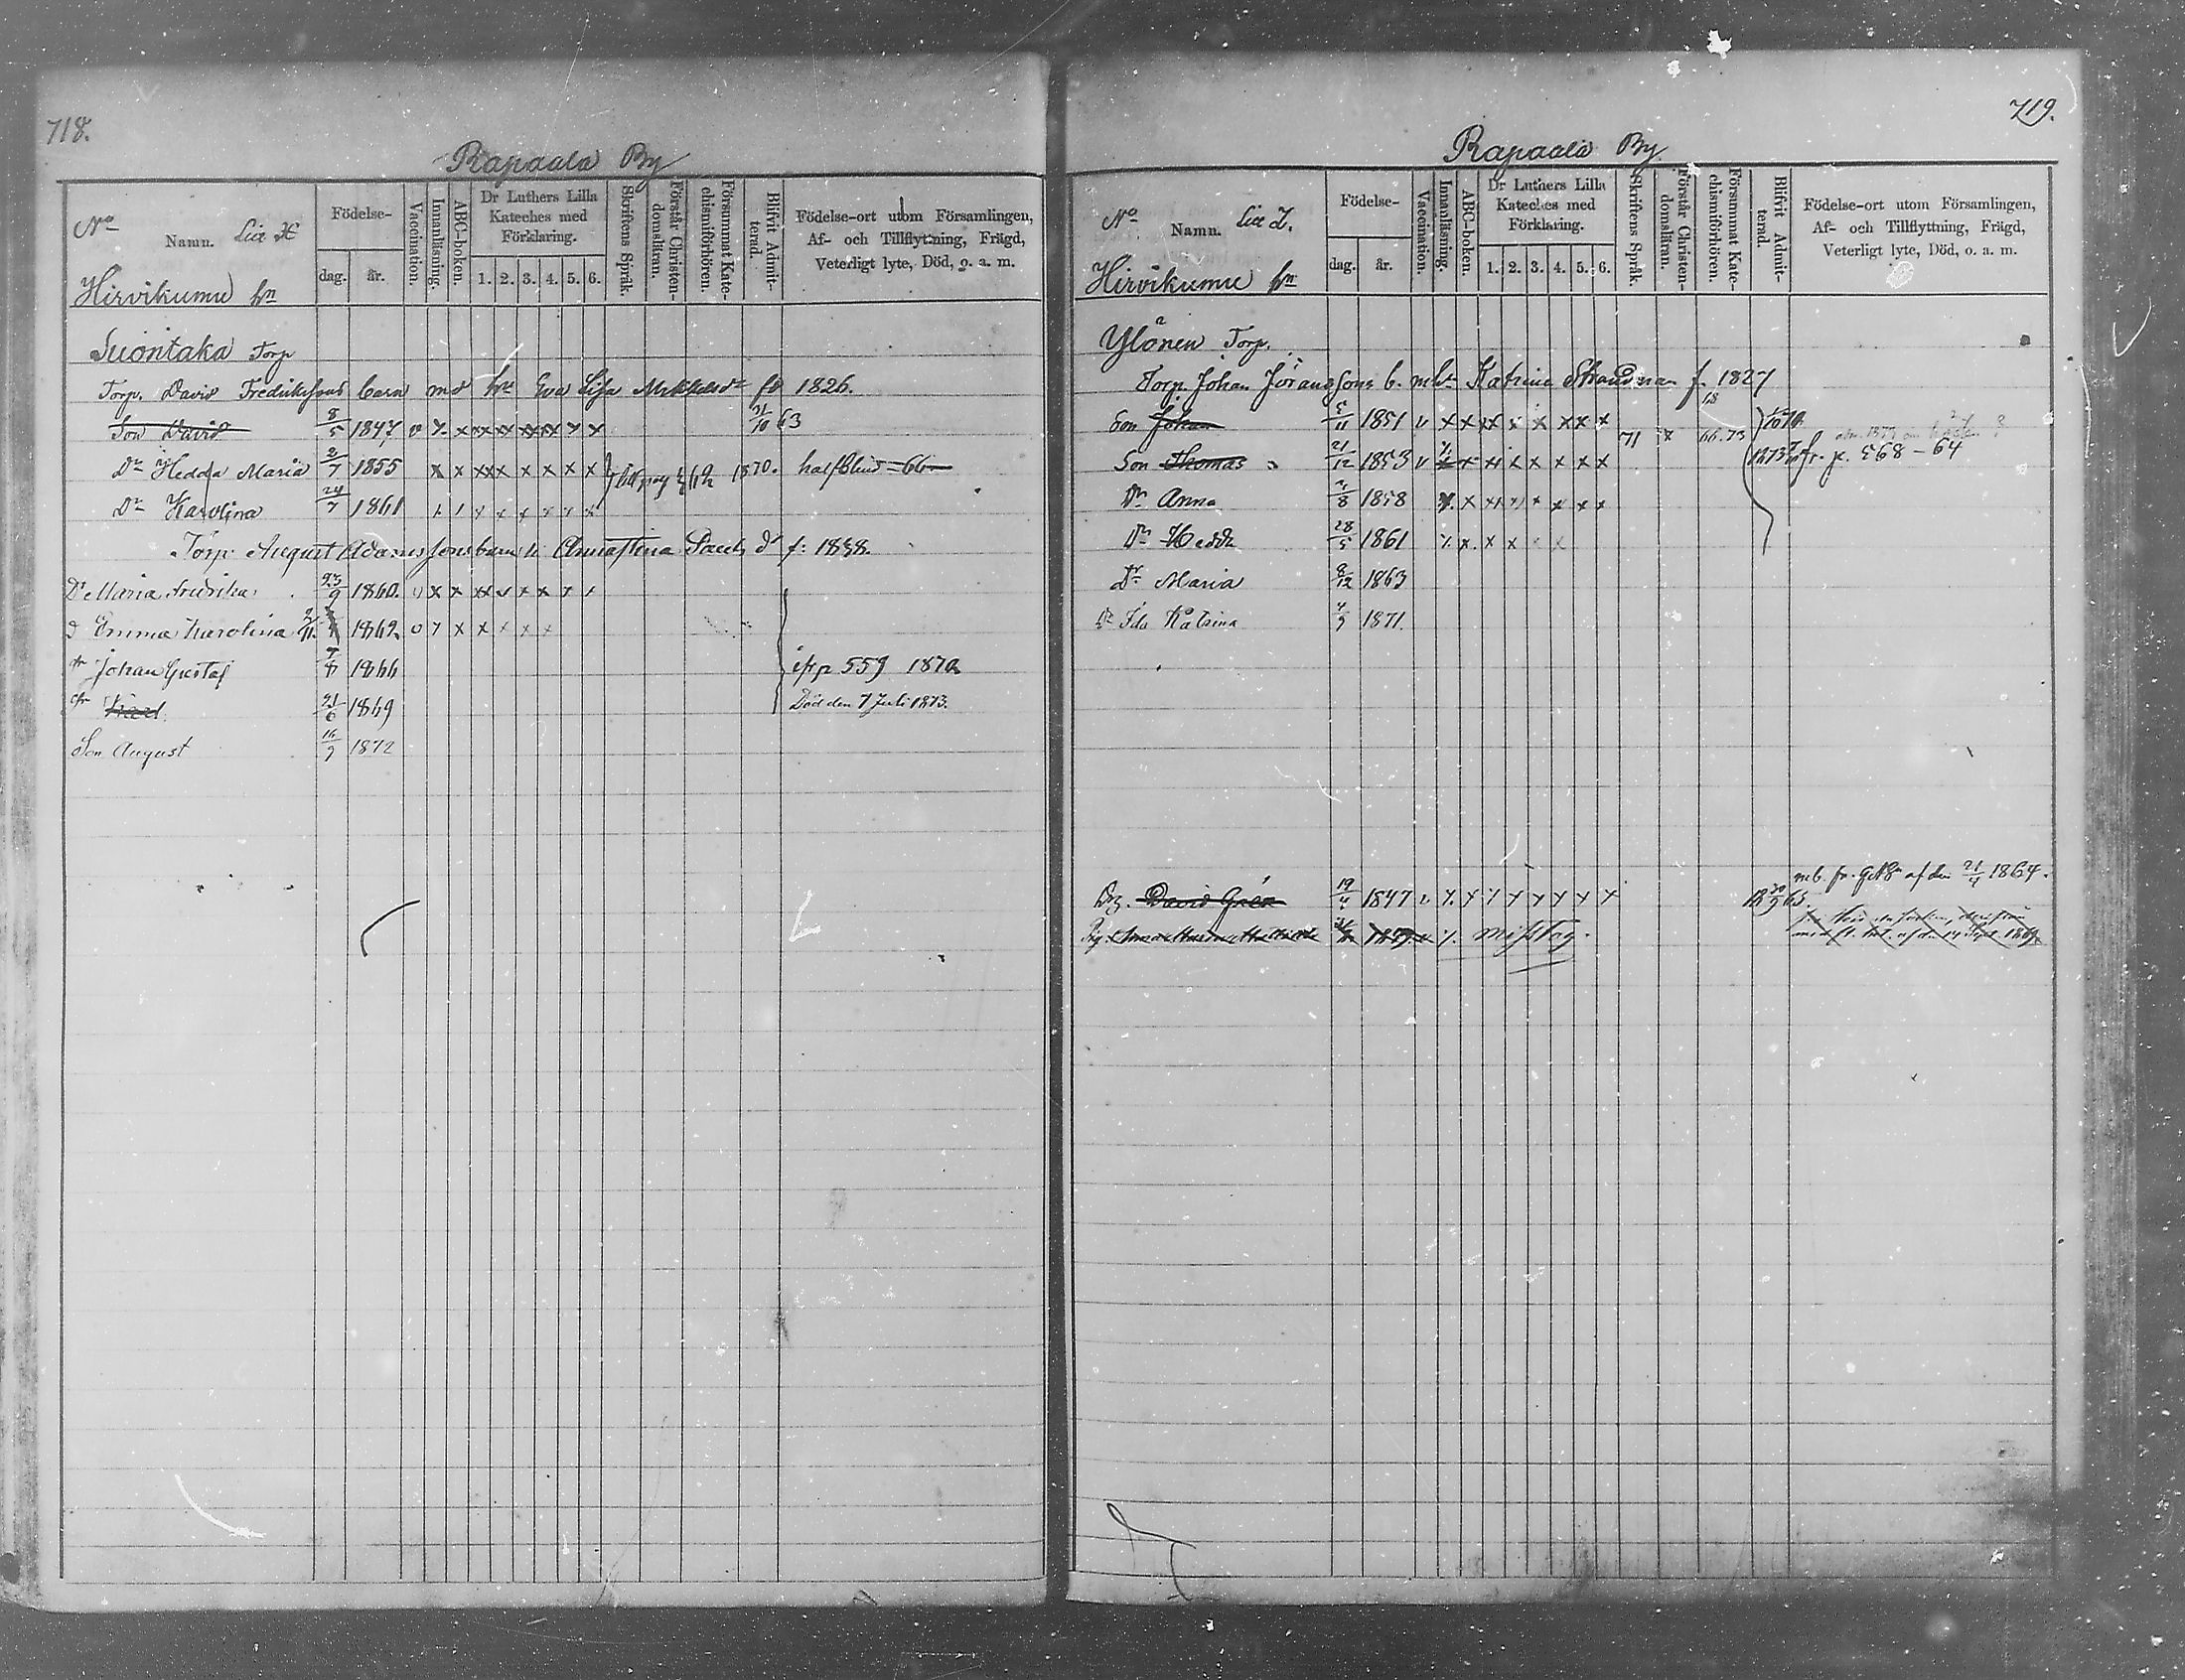 718.
Rapaala By
No Namn. Födelse- dag. år. Vaccination. Innanläsning. ABC-boken. Dr Luthers Lilla Kateches med Förklaring. 1. 2. 3. 4. 5. 6. Skriftens Språk. Förstår Christen-domsläran. Försummat Kate-chismiförhören. Blifvit Admit-terad. Födelse-ort utom Församlingen, Af- och Tillflyttning, Frägd, Veterligt lyte, Död, o. a. m.
Hirvikumu hn
Suontaka Torp
Torp. David Fredrikssons barn md hu Eva Lisa fd 1826.
Son David 8/5 1847 v x x x x x x x 31/10 63
Dr Hedda Maria 2/7 1855 x x xx x x x x x 1870. halfblind = 66
Dr Karolina 24/7 1861
Torp. August Adamssons barn f: 1838.
Dr Maria 23/9 1860. v x x xx x x x
d Emma Karolina 1862. v x x x x x x
Johan Gustaf 1866 p 559 1872
Karl 21/6 1869 Död den 7 Juli 1873.
Son August 16/9 1872
719.
Rapaala By
No Namn. Födelse- dag. år. Vaccination. Innanläsning. ABC-boken. Dr Luthers Lilla Kateches med Förklaring. 1. 2. 3. 4. 5. 6. Skriftens Språk. Förstår Christen-domsläran. Försummat Kate-chismiförhören. Blifvit Admit-terad. Födelse-ort utom Församlingen, Af- och Tillflyttning, Frägd, Veterligt lyte, Död, o. a. m.
Hirvikumu hn
Ylönen Torp.
Torp. Johan Göranssons b. Katrina Strandman f. 1827
Son Johan 5/11 1851 v x x xx x x x x x
Son Thomas 21/12 1853 v x x x x x x x 71 x 66. 73 fr. p. 568 - 64
Dr Anna 1858 x x x x x x x
Dr Hedda 28/5 1861 x x x x x
Dr Maria 8/12 1863
Dr Ida Katrina 4/9 1871.
Drg. David Grén 19/4 1847 v x x x x x x x x af den 21/4 1864.
misstag.